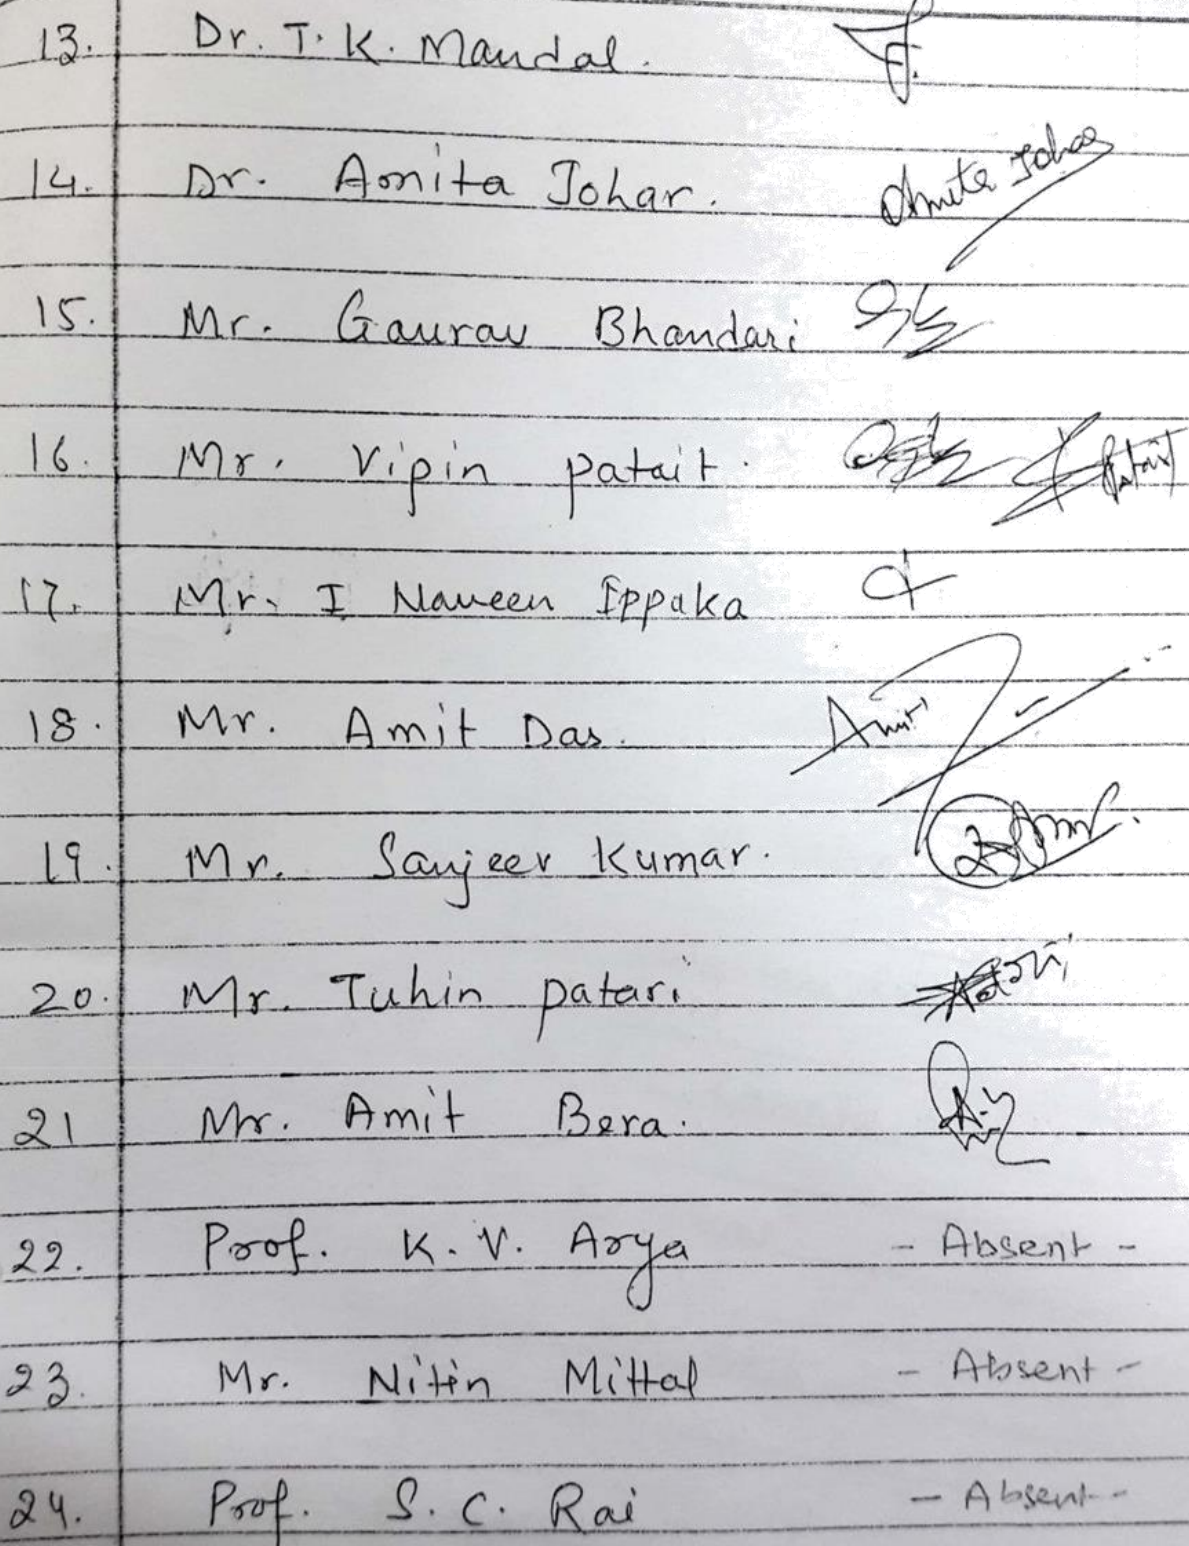 13. Dr. T. K. Mandal.
14. Dr. Amita Johar. Amita Johar
15. Mr. Gaurav Bhandari
16. Mr. Vipin patait. Patait
17. Mr. I Naveen Eppaka
18. Mr. Amit Das. Amit
19. Mr. Sanjeev Kumar.
20. Mr. Tuhin patari
21 Mr. Amit Bera.
22. Prof. K. V. Arya - Absent -
23. Mr. Nitin Mittal - Absent -
24. Prof. S. C. Rai - Absent -